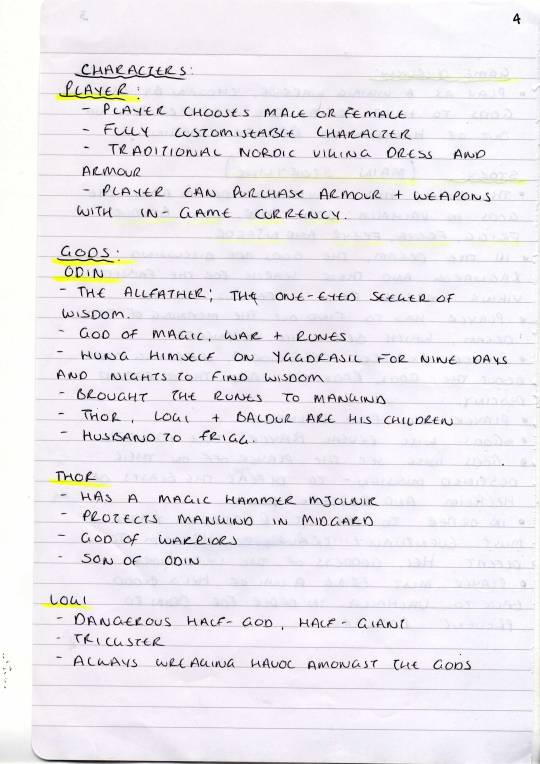 4
CHARACTERS:
PLAYER:
- PLAYER CHOOSES MALE OR FEMALE
- FULLY CUSTOMISEABLE CHARACTER
- TRADITIONAL NORDIC VIKING DRESS AND
ARMOUR
- PLAYER CAN PURCHASE ARMOUR + WEAPONS
WITH IN-GAME CURRENCY.
GODS:
ODIN
- THE ALLFATHER; THE ONE-EYED SEEKER OF
WISDOM.
- GOD OF MAGIC, WAR + RUNES
- HUNG HIMSELF ON YGGDRASIL FOR NINE DAYS
AND NIGHTS TO FIND WISDOM
- BROUGHT THE RUNES TO MANKIND
- THOR, LOKI + BALDUR ARE HIS CHILDREN
- HUSBAND TO FRIGG.
THOR
- HAS A MAGIC HAMMER MJOLNIR
- PROTECTS MANKIND IN MIDGARD
- GOD OF WARRIORS
- SON OF ODIN
LOKI
- DANGEROUS HALF-GOD, HALF-GIANT
- TRICKSTER
- ALWAYS WREAKING HAVOC AMONGST THE GODS